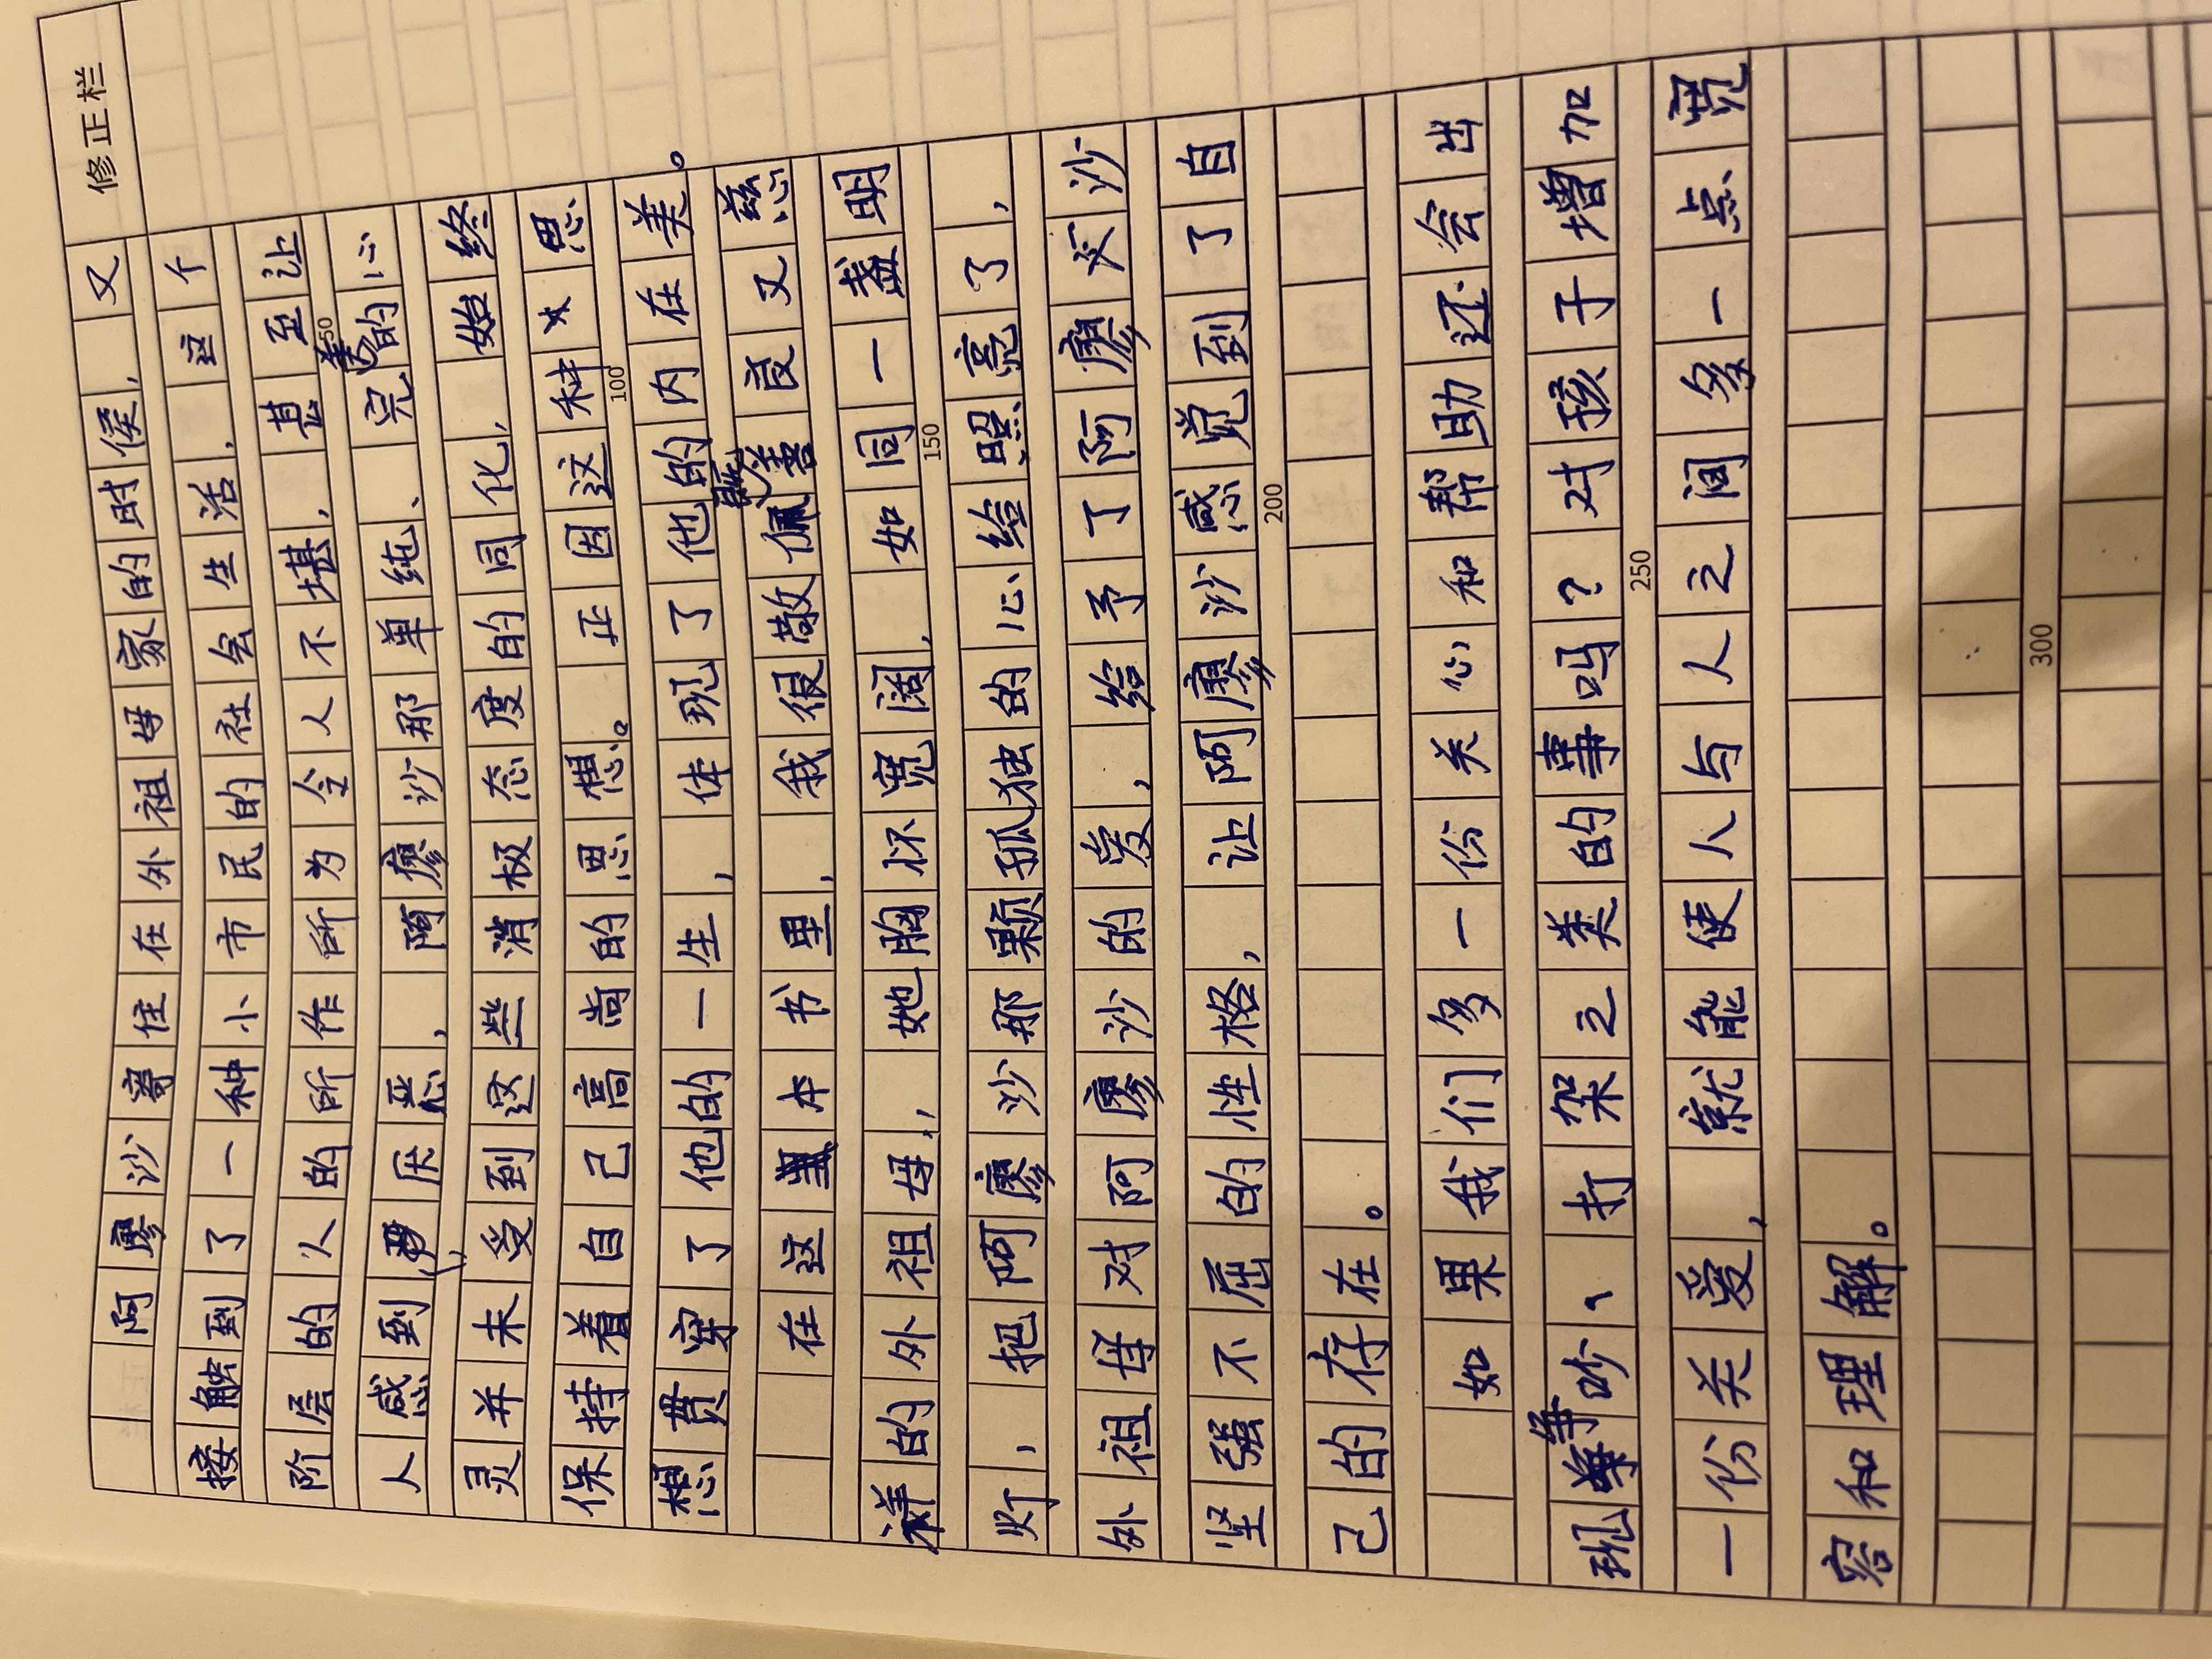 修正栏
阿廖沙寄住在外祖母家的时侯，又
接触到了一种小市民的社会生活，这个
阶层的人的所作所为令人不堪，甚至让
50
人感到厌恶，阿廖沙那单纯、完美的心
灵并未受到这些消极态度的同化，始终
保持着自己高尚的思想。正因这种思
100
想贯穿了他的一生，体现了他的内在美。
在这本书里，我很敬佩善良又慈
祥的外祖母，她胸怀宽阔，如同一盏明
150
灯，把阿廖沙那颗孤独的心给照亮了，
外祖母对阿廖沙的爱，给予了阿廖沙
坚强不屈的性格，让阿廖沙感觉到了自
200
己的存在。
如果我们多一份关心和帮助还会出
现争吵、打架之类的事吗？对孩子增加
250
一份关爱，就能使人与人之间多一点宽
容和理解。
300